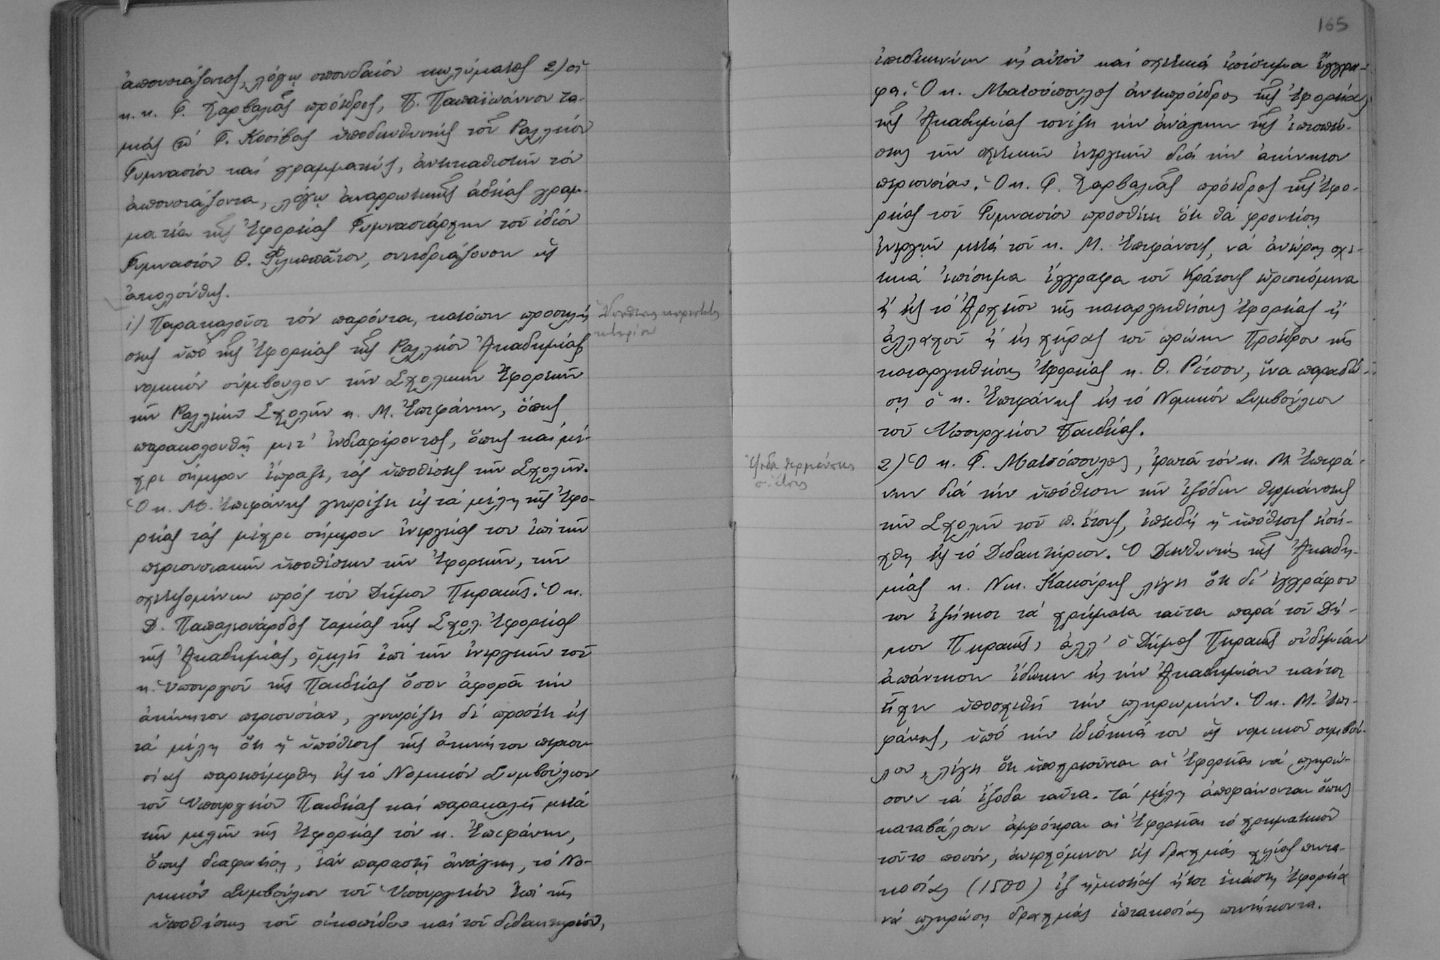 ἀπουσιάζοντος, λόγῳ σπουδαίου κωλύματος 2) οἱ
κ.κ. Φ. Χαρβαλιᾶς πρόεδρος, Π. Παπαϊωάννου τα-
μίας Φ. Κοσίβας ὑποδιευθυντής τοῦ Ραλλείου
Γυμνασίου καί γραμματεύς, ἀντικαθιστῶν τόν
ἀπουσιάζοντα, λόγῳ ἀναρρωτικῆς ἀδείας γραμ-
ματέα τῆς Ἐφορείας Γυμνασιάρχην τοῦ ἰδίου
Γυμνασίου Θ. Φιλιππᾶτον, συνεδριάζουσι ὡς
ἀκολούθως.
1) Παρακαλοῦσι τόν παρόντα, κατόπιν προσκλή-
σεως ὑπό τῆς Ἐφορείας τῆς Ραλλείου Ἀκαδημίας
νομικόν σύμβουλον τῶν Σχολικῶν Ἐφορειῶν
τῶν Ραλλείων Σχολῶν κ. Μ. Ἐπιφάνην, ὅπως
παρακολουθῇ μετ' ἐνδιαφέροντος, ὅπως καί μέ-
χρι σήμερον ἔπραξε, τάς ὑποθέσεις τῶν Σχολῶν.
Ὁ κ. Μ. Ἐπιφάνης γνωρίζει εἰς τά μέλη τῆς Ἐφο-
ρείας τάς μέχρι σήμερον ἐνεργείας του ἐπί τῶν
περιουσιακῶν ὑποθέσεων τῶν Ἐφορειῶν, τῶν
σχετιζομένων πρός τόν Δῆμον Πειραιῶς. Ὁ κ.
Δ. Παπαλεονάρδος ταμίας τῆς Σχολ. Ἐφορείας
τῆς Ἀκαδημίας, ὁμιλεῖ ἐπί τῶν ἐνεργειῶν τοῦ
κ. Ὑπουργοῦ τῆς Παιδείας ὅσον ἀφορᾶ τήν
ἀκίνητον περιουσίαν, γνωρίζει δέ προσέτι εἰς
τά μέλη ὅτι ἡ ὑπόθεσις τῆς ἀκινήτου περιου-
σίας παρεπέμφθη εἰς τό Νομικόν Συμβούλιον
τοῦ Ὑπουργείου Παιδείας καί παρακαλεῖ μετά
τῶν μελῶν τῆς Ἐφορείας τόν κ. Ἐπιφάνην,
ὅπως διαφωτίσῃ, ἐάν παραστῇ ἀνάγκη, τό Νο-
μικόν Συμβούλιον τοῦ Ὑπουργείου ἐπί τῆς
ὑποθέσεως τοῦ οἰκοπέδου καί τοῦ διδακτηρίου,
165
ἐπιδεικνύων εἰς αὐτόν καί σχετικά ἐπίσημα ἔγγρα-
φα. Ὁ κ. Ματσόπουλος ἀντιπρόεδρος τῆς Ἐφορείας
τῆς Ἀκαδημίας τονίζει τήν ἀνάγκην τῆς
τῶν σχετικῶν ἐνεργειῶν διά τήν ἀκίνητον
περιουσίαν. Ὁ κ. Φ. Χαρβαλιᾶς πρόεδρος τῆς Ἐφο-
ρείας τοῦ Γυμνασίου προσθέτει ὅτι θά φροντίσῃ
ἐνεργῶν μετά τοῦ κ. Μ. Ἐπιφάνους, νά ἀνεύρῃ σχε-
τικά ἐπίσημα ἔγγραφα τοῦ Κράτους εὑρισκόμενα
ἤ εἰς τό Ἀρχεῖον τῆς καταργηθείσης Ἐφορείας ἤ
ἀλλαχοῦ ἤ εἰς χεῖρας τοῦ πρώην Προέδρου τῆς
καταργηθείσης Ἐφορείας κ. Θ. Ρέτσου, ἵνα παραδώ-
σῃ ὁ κ. Ἐπιφάνης εἰς τό Νομικόν Συμβούλιον
τοῦ Ὑπουργείου Παιδείας.
Ἔξοδα θερμάνσεως
2) Ὁ κ. Φ. Ματσόπουλος, ἐρωτᾶ τόν κ. Μ. Ἐπιφά-
νην διά τήν ὑπόθεσιν τῶν ἐξόδων θερμάνσεως
τῶν Σχολῶν τοῦ π. ἔτους, ἐπειδή ἡ ὑπόθεσις εἰσή-
χθη εἰς τό Διδακτήριον. Ὁ Διευθυντής τῆς Ἀκαδη-
μίας κ. Νικ. Κακούρης λέγει ὅτι δι' ἐγγράφου
του ἐζήτησε τά χρήματα ταῦτα παρά τοῦ Δή-
μου Πειραιῶς, ἀλλ' ὁ Δῆμος Πειραιῶς οὐδεμίαν
ἀπάντησιν ἔδωκεν εἰς τήν Ἀκαδημίαν καίτοι
εἶχεν ὑποσχεθῆ τήν πληρωμήν. Ὁ κ. Μ. Ἐπι-
φάνης, ὑπό τήν ἰδιότητά του ὡς νομικοῦ συμβού-
λου, λέγει ὅτι ὑποχρεοῦνται αἱ Ἐφορεῖαι νά πληρώ-
σουν τά ἔξοδα ταῦτα. Τά μέλη ἀποφαίνονται ὅπως
καταβάλουν ἀμφότεραι αἱ Ἐφορεῖαι τό χρηματικόν
τοῦτο ποσόν, ἀνερχόμενον εἰς δραχμάς χιλίας πεντα-
κοσίας (1500) ἐξ ἡμισείας ἤτοι ἑκάστη Ἐφορεία
νά πληρώσῃ δραχμάς ἑπτακοσίας πεντήκοντα.